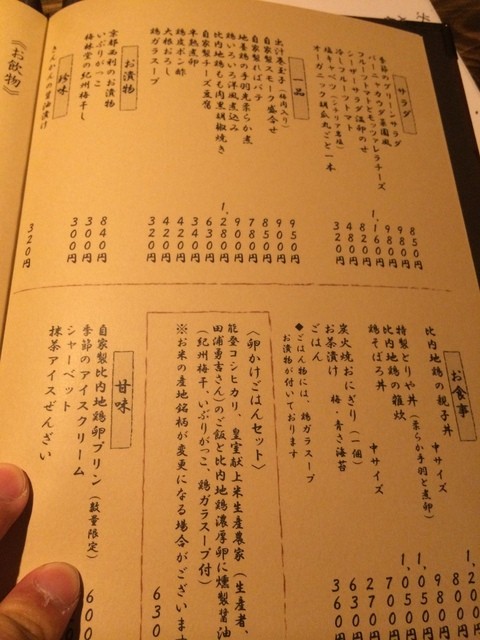 サラダ
季節のグリーンサラダ
フルーツトマトとモッツァレラチーズ
シーザーサラダ温卵のせ
冷しフルーツトマト
塩キャベツ
オーガニック胡瓜丸ごと一本
980円
850円
1,160円
480円
820円
320円
一品
出汁巻玉子(鶏肉入り)
自家製スモーク盛合せ
自家製ればパテ
地養鶏の手羽先柔らか煮
鶏いろいろ洋風煮込み
比内地鶏もも肉黒胡椒焼き
自家製チーズ豆腐
半熟煮卵
鶏皮ポン酢
大根おろし
鶏ガラスープ
950円
900円
850円
780円
900円
1,280円
630円
340円
420円
420円
320円
お漬物
京都西利のお漬物
いぶりがっこ
梅林堂の紀州梅干し
840円
300円
300円
珍味
きんかんの醤油漬け
320円
《お飲物》
お食事
比内地鶏の親子丼
中サイズ
特製とりや丼(柔らか手羽と煮卵)
比内地鶏の雑炊
鶏そぼろ丼
中サイズ
炭火焼おにぎり(一個)
お茶漬け 梅・青さ海苔
ごはん
◆ごはん物には、鶏ガラスープ
お漬物が付いております
800
980
1,050
1,050
700
270円
630円
360円
〈卵かけごはんセット〉
能登コシヒカリ、皇室献上米生産農家(生産者、
田浦勇吉さん)のご飯と比内地鶏濃厚卵に燻製醤油
(紀州梅干、いぶりがっこ、鶏ガラスープ付)
※お米の産地銘柄が変更になる場合がございます
630
甘味
自家製比内地鶏卵プリン(数量限定)
季節のアイスクリーム
シャーベット
抹茶アイスぜんざい
600